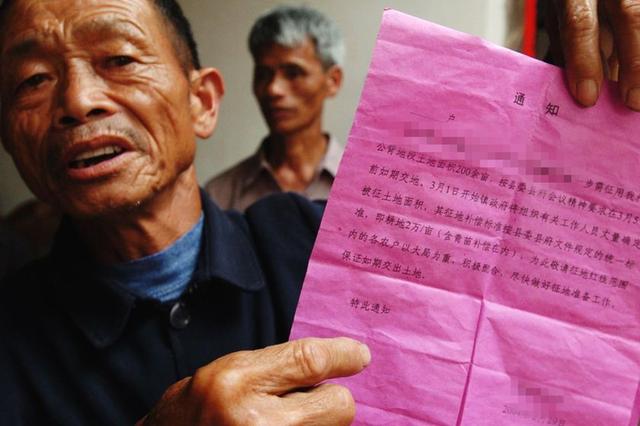 通知
户
步需征用我
公背地段土地面积200余亩，按县委县府会议精神要求在3月
前如期交地，3月1日开始镇政府将组织有关工作人员丈量确
被征土地面积，其征地补偿标准按县委县府文件规定的统一标
准，即耕地2万/亩（含青苗补偿在内），为此敬请征地红线范围
内的各农户以大局为重，积极配合，尽快做好征地准备工作，
保证如期交出土地。
特此通知